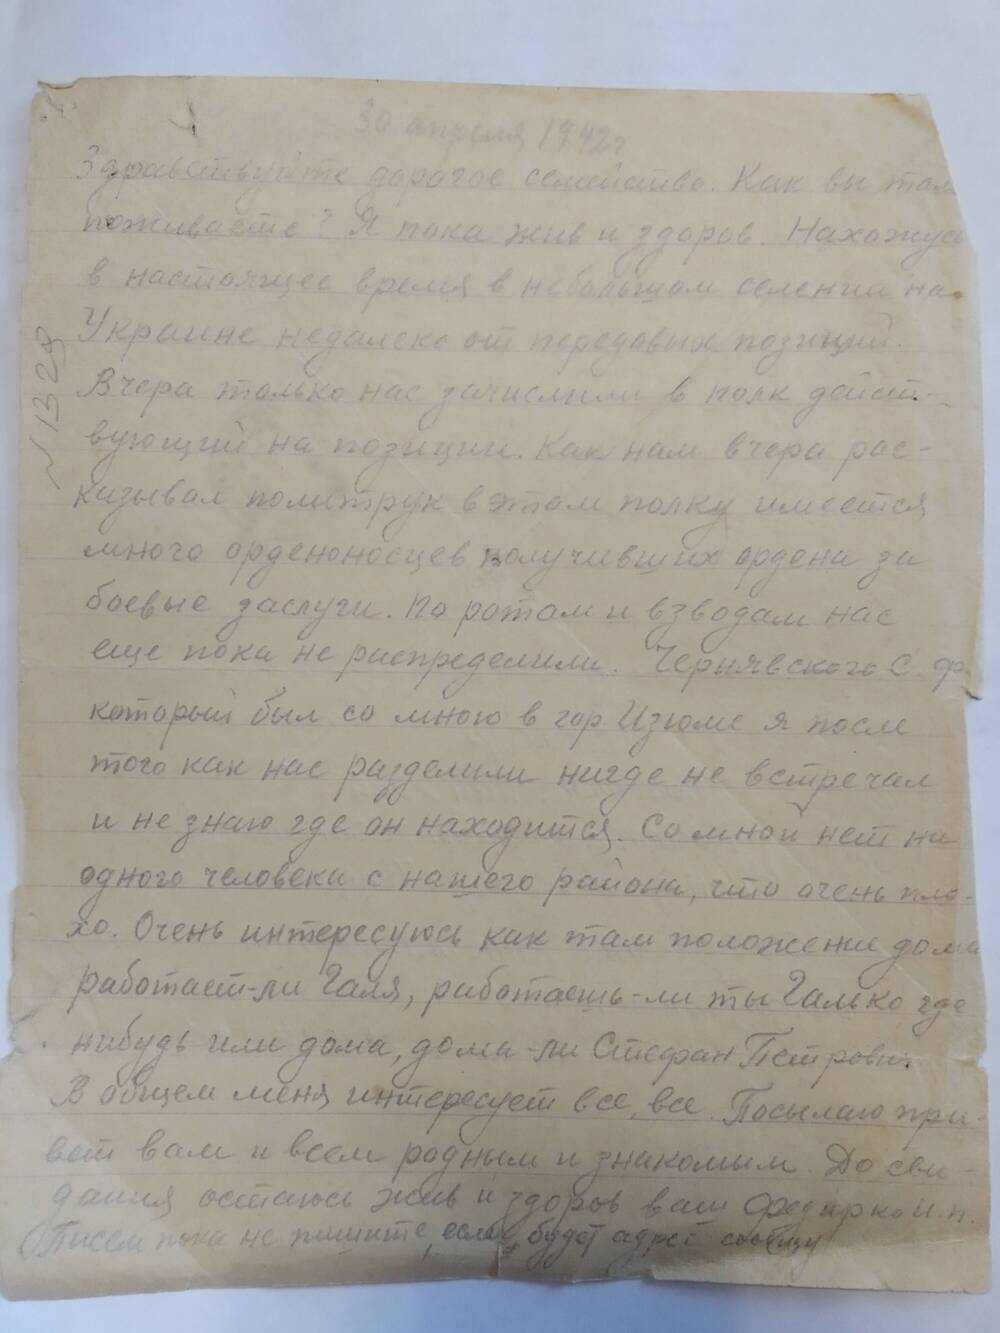 30 апреля 1942 г
Здравствуйте дорогое семейство. Как вы там
поживаете? Я пока жив и здоров. Нахожусь
в настоящее время в небольшом селении на
Украине недалеко от передовых позиций.
Вчера только нас зачислили в полк дейст-
вующий на позиции. Как нам вчера рас-
казывал политрук в этом полку имеется
много орденоносцев получивших ордена за
боевые заслуги. По ротам и взводам нас
еще пока не распределили. Чернявского С. Ф.
который был со мною в гор. Изюме я после
того как нас разделили нигде не встречал
и не знаю где он находится. Со мной нет ни
одного человека с нашего района, что очень пло-
хо. Очень интересуюсь как там положение дома
работает-ли Галя, работаешь-ли ты Галько где
нибудь или дома, дома-ли Стефан Петрович.
В общем меня интересует все, все. Посылаю при-
вет вам и всем родным и знакомым. До сви-
дания остаюсь жив и здоров ваш Федирко И. П.
Писем пока не пишите, если будет адрес сообщу
N 13 29